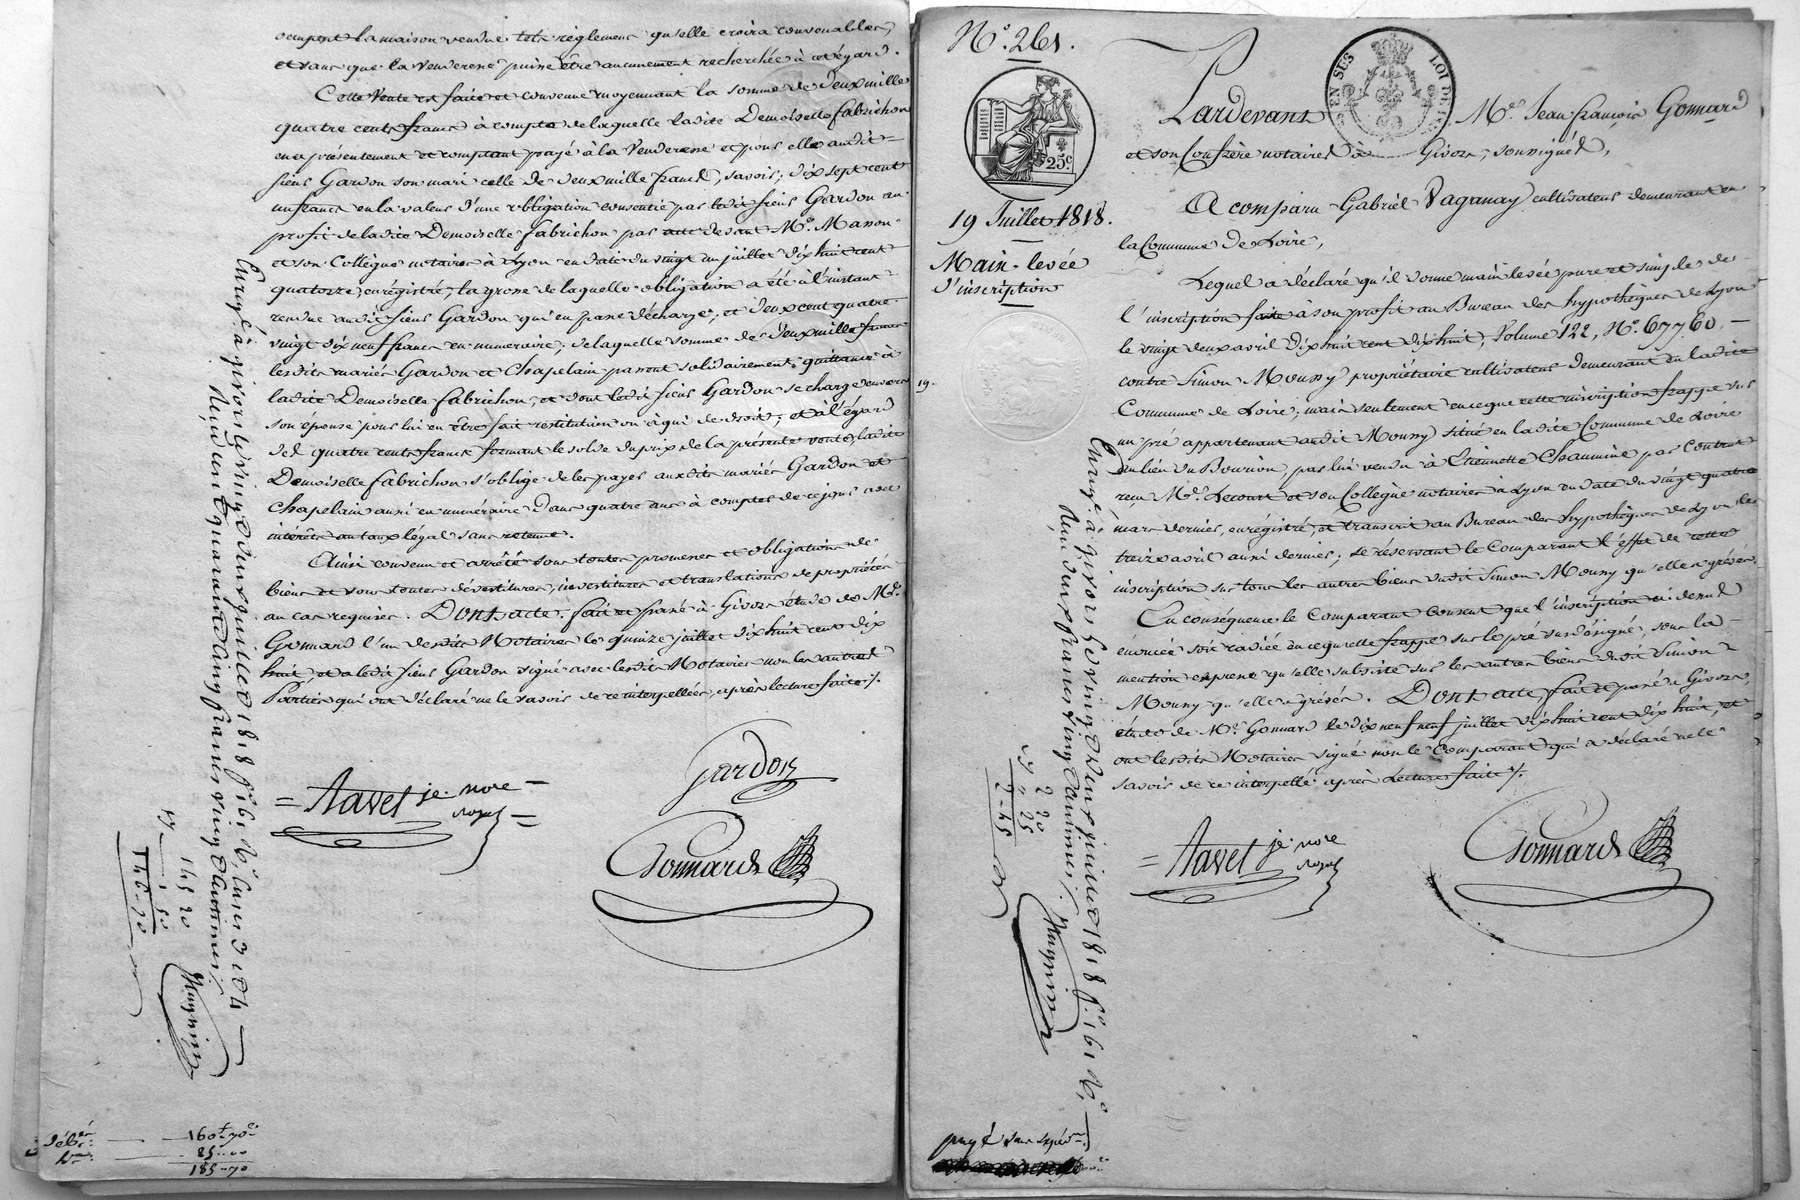 occupent la maison vendue tels règlemens qu'elle croira convenables,
et sans que la Venderesse puisse être aucunement recherchée à cet égard.
Cette Vente est faite et convenue moyennant la somme de deux mille
quatre cents francs à compte de laquelle ladite Demoiselle fabrichon
en a présentement et comptant payé à la Venderesse et pour elle audit
sieur Gardon son mari celle de deux mille francs, savoir; dix sept cent
un francs en la valeur d'une obligation consentie par ledit sieur Gardon au
profit de ladite Demoiselle fabrichon par devant Me. Manon
et son Collègue notaires à Lyon en date du vingt un juillet dix huit cent
quatorze, enrégistré, la grosse de laquelle obligation a été à l'instant
rendue audit sieur Gardon qui en passe décharge; et deux cent quatre
vingt dix neuf francs en numéraire; de laquelle somme de deux mille francs
lesdits mariés Gardon et Chapelain passent solidairement quittance à
ladite Demoiselle fabrichon, et dont ledit sieur Gardon se charge envers
son épouse pour lui en être fait restitution ou à qui de droit; et à l'égard
des quatre cents francs formant le solde du prix de la présente vente, ladite
Demoiselle fabrichon s'oblige de les payer auxdits mariés Gardon et
Chapelain aussi en numéraire dans quatre ans à compter de ce jour avec
intérêts au taux légal sans retenue.
Ainsi convenu et arrêté sous toutes promesses et obligations de
biens et sous toutes dévestitures, investitures et translations de propriétés
au cas requises. Dont acte, fait et passé à Givors étude de Me.
Gonnard l'un desdits Notaires le quinze juillet dix huit cent dix
huit, et a ledit sieur Gardon signé avec lesdits Notaires non les autres
Parties qui ont déclaré ne le savoir de ce interpellées, après lecture faite ./.
gardon
= Navet je. nore =
Gonnard
Enrgé. à givors le vingt deux juillet 1818 fo. 161 Vo.
Reçu cent quarante cinq francs vingt centimes.
145 20
160 70
85 00
185 70
No. 261.
25c.
EN SES LOI DE
19 Juillet 1818.
Main-levée
d'inscription
19.
Pardevant Me. Jean françois Gonnard
et son Confrère notaires à Givors, soussignés,
A comparu Gabriel Vaganay cultivateur demeurant en
la Commune de Loire,
Lequel a déclaré qu'il donne main levée pure et simple de
l'inscription faite à son profit au Bureau des hypothèques de Lyon
le vingt deux avril dix huit cent dix huit, Volume 122, No. 67760,
contre Simon Mouny propriétaire cultivateur demeurant en ladite
Commune de Loire; mais seulement en ce que cette inscription frappe sur
un pré appartenant audit Mouny situé en ladite Commune de Loire
au lieu du Bourion, par lui vendu à Etiennette Chaumine par Contrat
reçu Me. Lecourt et son Collègue notaires à Lyon en date du vingt quatre
mars dernier, enrégistré, et transcrit au Bureau des hypothèques de Lyon le
treize avril aussi dernier; se réservant le Comparant l'effet de cette
inscription sur tous les autres biens dudit Simon Mouny qu'elle a grévés.
En conséquence le Comparant consent que l'inscription ci-dessus
énoncée soit radiée en ce qu'elle frappe sur le pré sus désigné, sous la
mention expresse qu'elle subsiste sur les autres biens dudit Simon
Mouny qu'elle a grévés. Dont acte, fait et passé à Givors,
étude de Me. Gonnard le dix neuf juillet dix huit cent dix huit, et
ont lesdits Notaires signé non le Comparant qui a déclaré ne le
savoir de ce interpellé après Lecture faite ./.
= Navet je. nore
Gonnard
Enrgé. à givors le vingt deux juillet 1818 fo. 161 Vo.
Reçu deux francs vingt centimes.
2 20
25
2-45